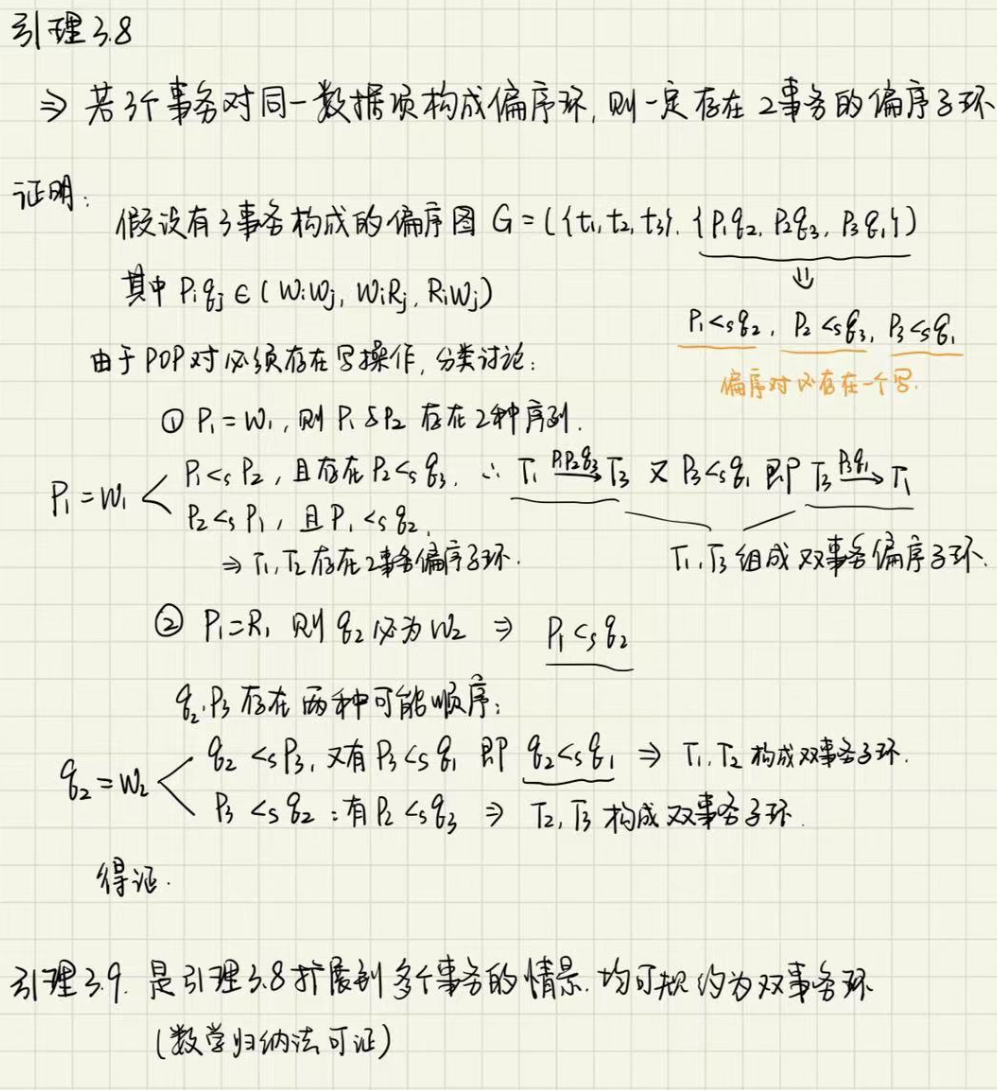 引理3.8
⇒ 若3个事务对同一数据项构成偏序环, 则一定存在2事务的偏序子环
证明:
假设有3事务构成的偏序图 G = ({t₁, t₂, t₃}, {P₁q₂, P₂q₃, P₃q₁})
⇓
其中 Pᵢqⱼ ∈ (WᵢWⱼ, WᵢRⱼ, RᵢWⱼ)
P₁<ₛq₂, P₂<ₛq₃, P₃<ₛq₁
由于POP对必须存在写操作, 分类讨论:
偏序对必存在一个写.
① P₁ = W₁, 则 P₁与P₂ 存在2种序列.
P₁ = W₁ < P₁<ₛP₂, 且存在 P₂<ₛq₃. ∴ T₁ —P₁P₂q₃→ T₃ 又 P₃<ₛq₁ 即 T₃ —P₃q₁→ T₁
P₂<ₛP₁, 且 P₁<ₛq₂.
⇒ T₁, T₂ 存在2事务偏序子环.
T₁, T₃ 组成双事务偏序子环.
② P₁=R₁ 则 q₂ 必为 W₂ ⇒ P₁<ₛq₂
q₂, P₃ 存在两种可能顺序:
q₂ = W₂ < q₂<ₛP₃, 又有 P₃<ₛq₁ 即 q₂<ₛq₁ ⇒ T₁, T₂ 构成双事务子环.
P₃<ₛq₂ : 有 P₂<ₛq₃ ⇒ T₂, T₃ 构成双事务子环.
得证.
引理3.9. 是引理3.8扩展到多个事务的情景. 均可规约为双事务环
(数学归纳法可证)